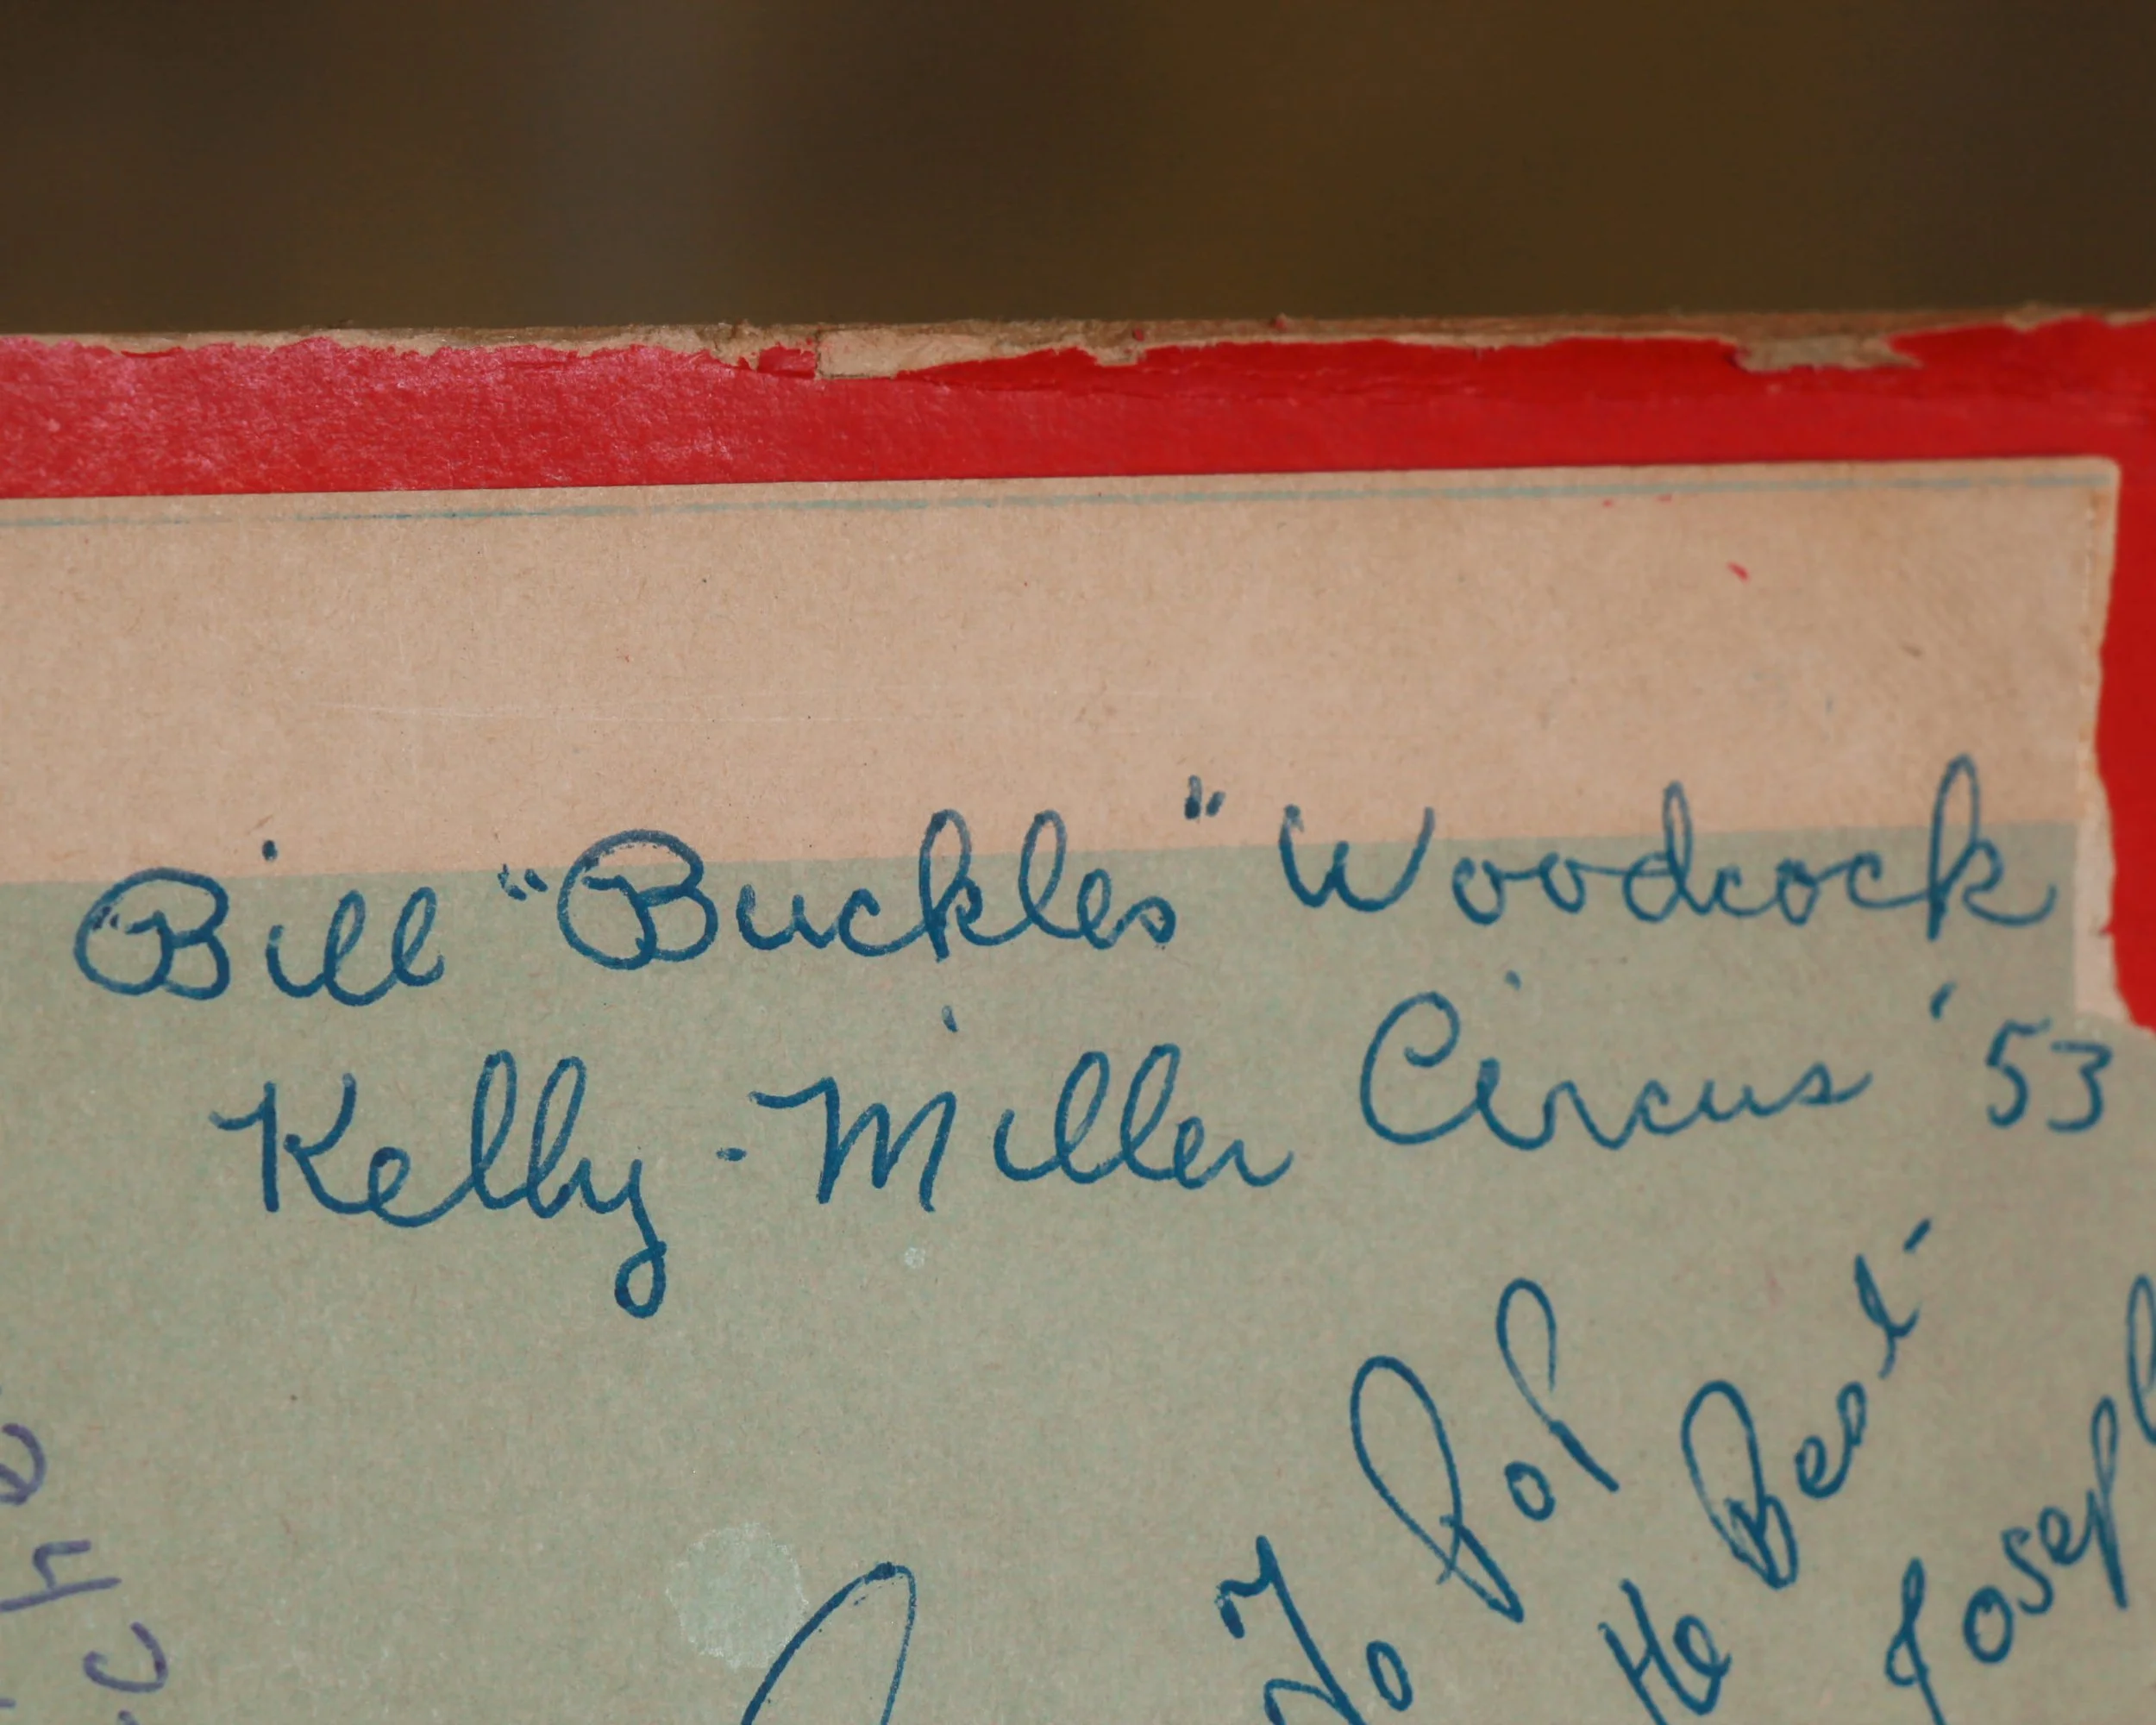 Bill "Buckles" Woodcock
Kelly-Miller Circus '53
To Pop
He Best
Joseph